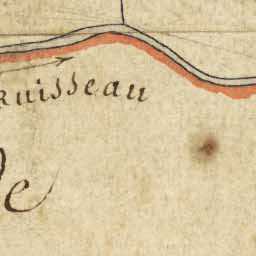 Ruisseau
de